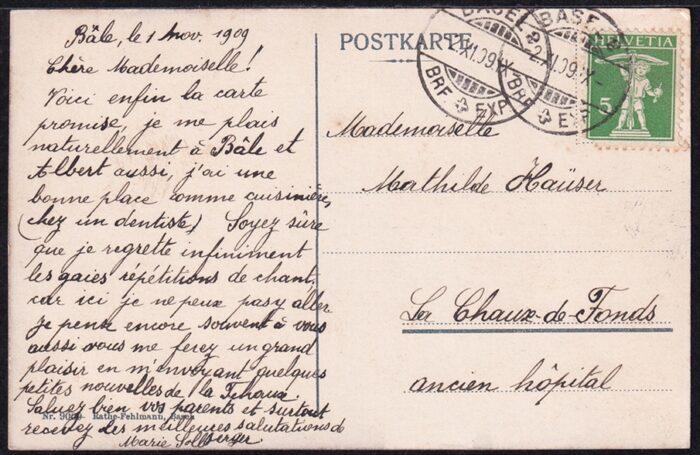 Bâle, le 1 Nov. 1909
Chère Mademoiselle!
Voici enfin la carte
promise, je me plais
naturellement à Bâle et
Albert aussi, j'ai une
bonne place comme cuisinière,
(chez un dentiste) Soyez sûre
que je regrette infiniment
les gaies répétitions de chant.
car ici je ne peux pas y aller
Je pense encore souvent à vous
aussi vous me ferez un grand
plaisir en m'envoyant quelques
petites nouvelles de la Tchaux
Saluez bien vos parents et surtout
recevez les meilleures salutations de
Marie
Nr. Rathe-Fehlmann, Basel
POSTKARTE
BASEL 2
XI.09.
BRF. EXP.
BASEL 2
2.XI.09.IX
BRF. EXP.
HELVETIA
5
Mademoiselle
Mathilde Haüser
La Chaux-de-Fonds
ancien hôpital